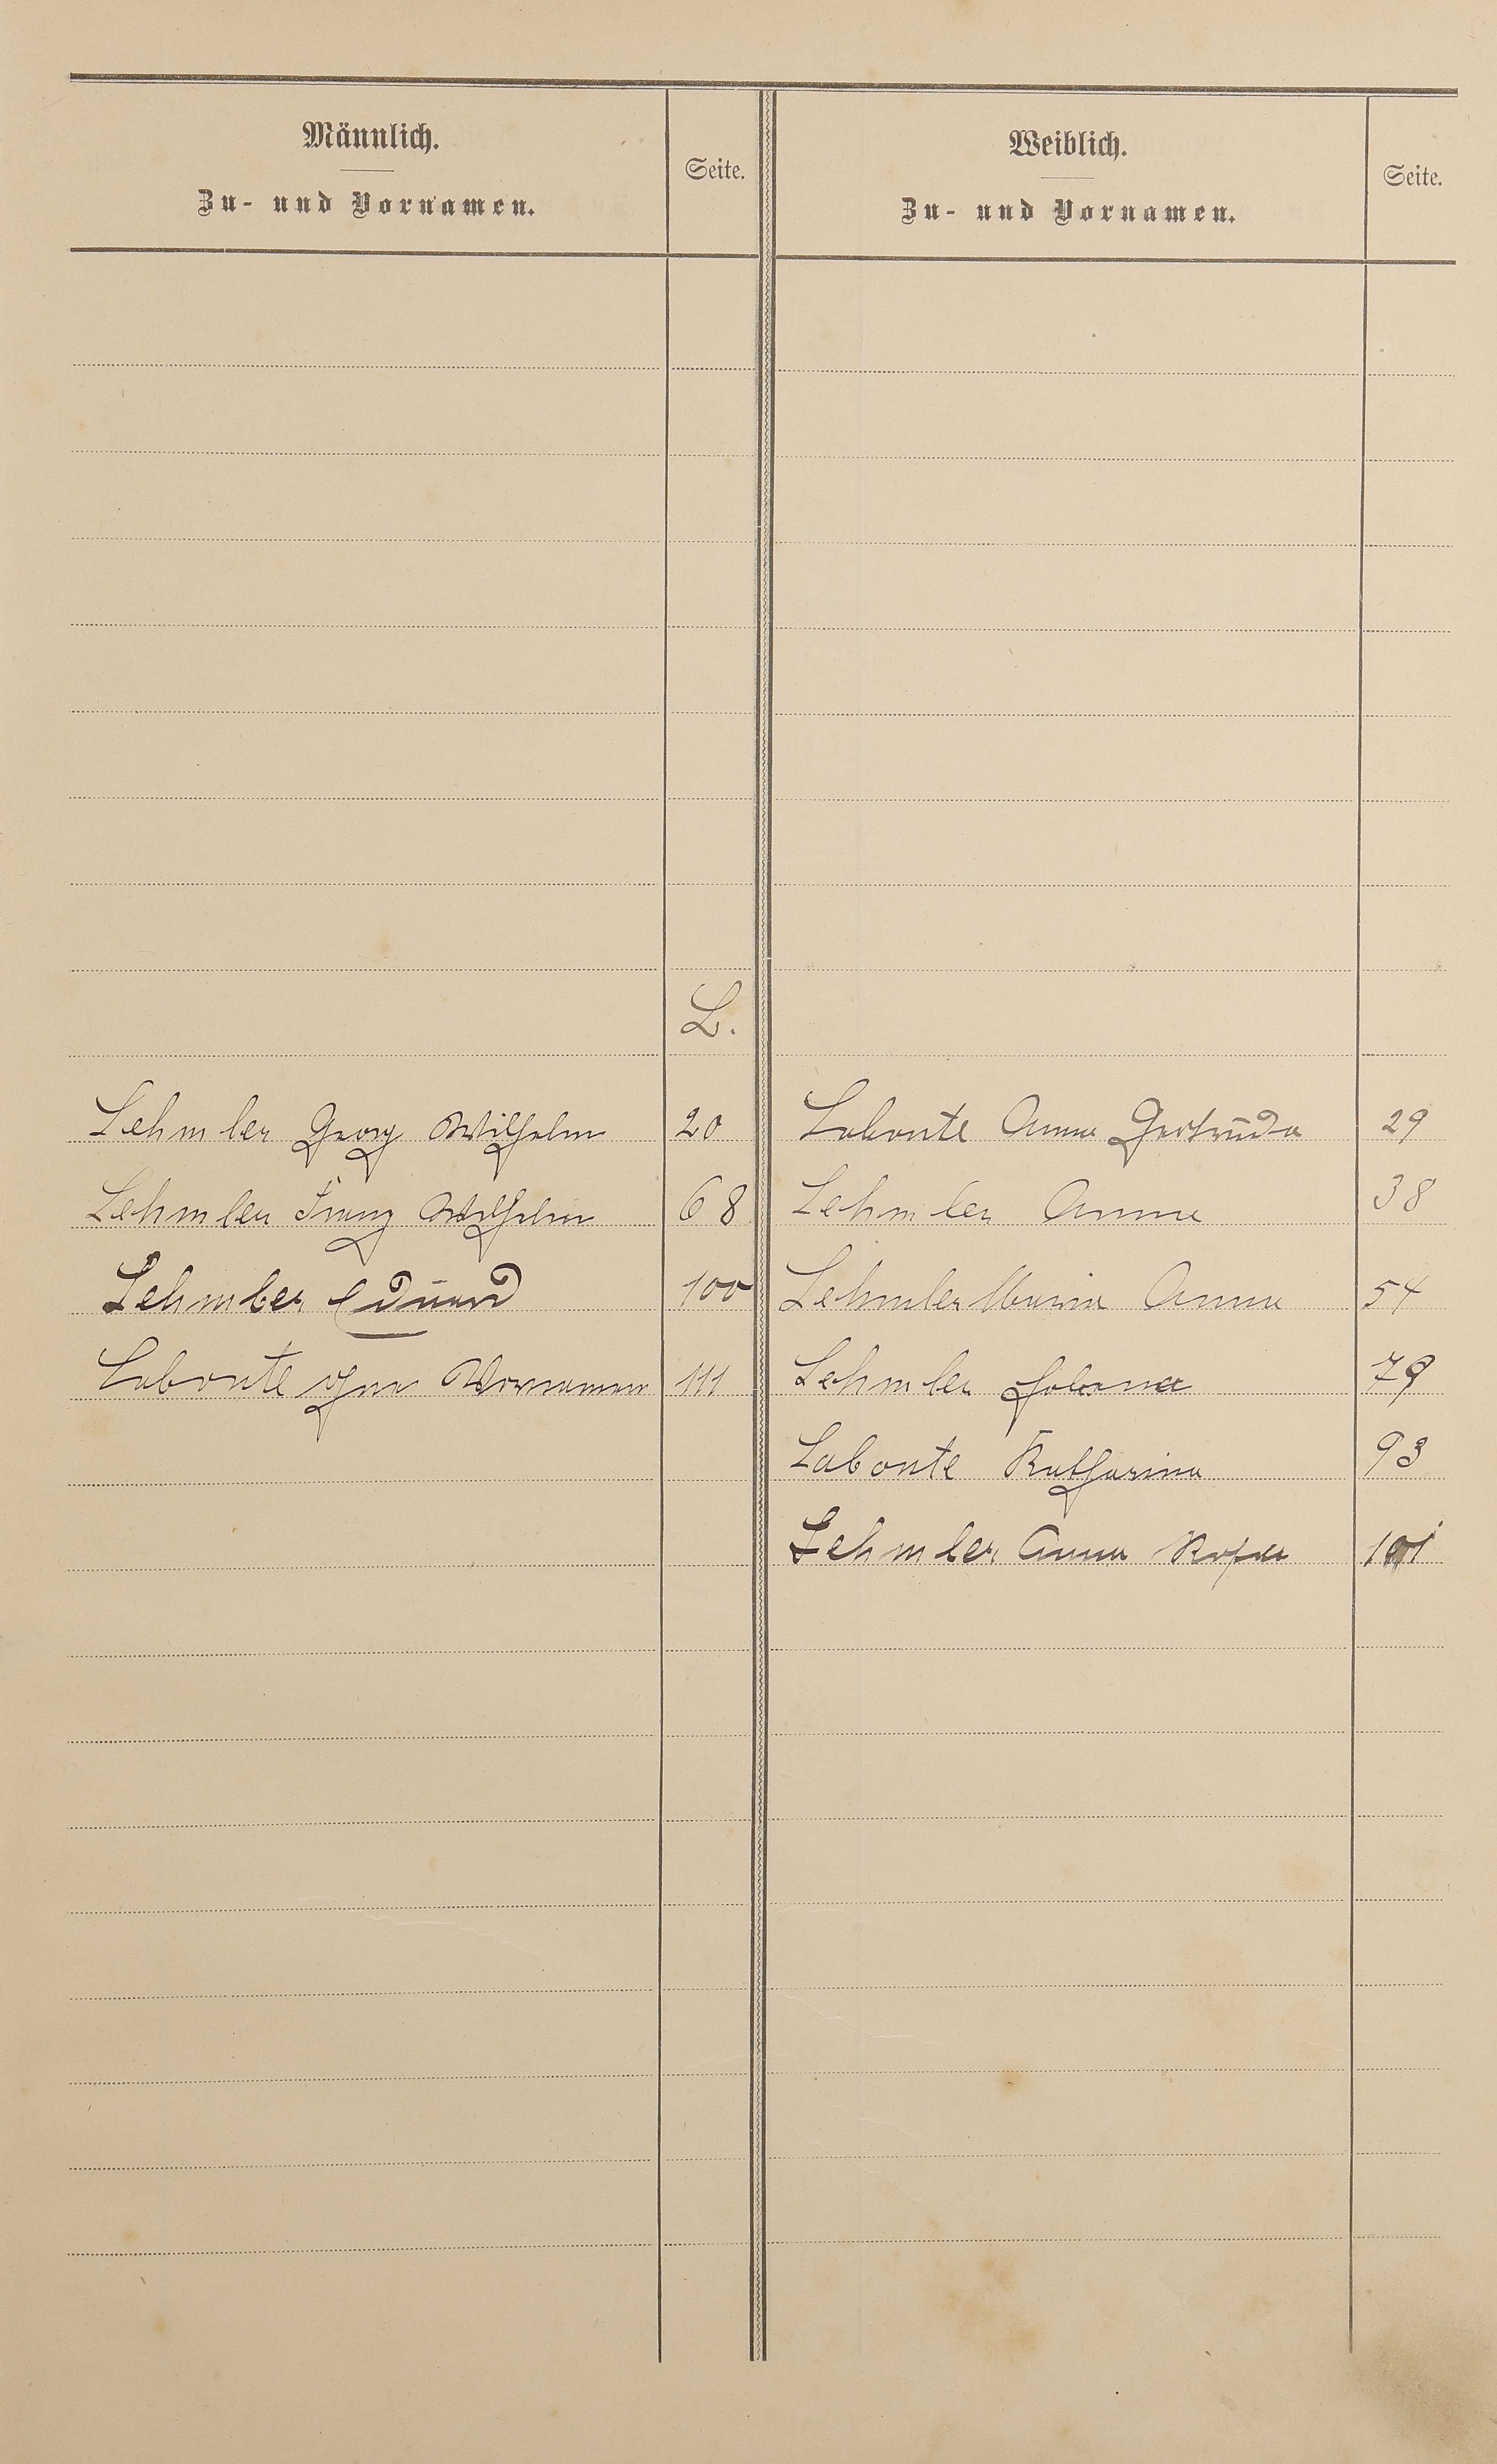 Männlich.
Zu- und Vornamen.
Seite.
Weiblich.
Zu- und Vornamen.
Seite.
L.
Lehmler Georg Wilhelm 20
Labonte Anna Gertruda 29
Lehmler Franz Wilhelm 68
Lehmler Anna 38
Lehmler Eduard 100
Lehmler Maria Anna 54
Labonte ohne Vornamen 111
Lehmler Helena 79
Labonte Katharina 93
Lehmler Anna Rosa 101